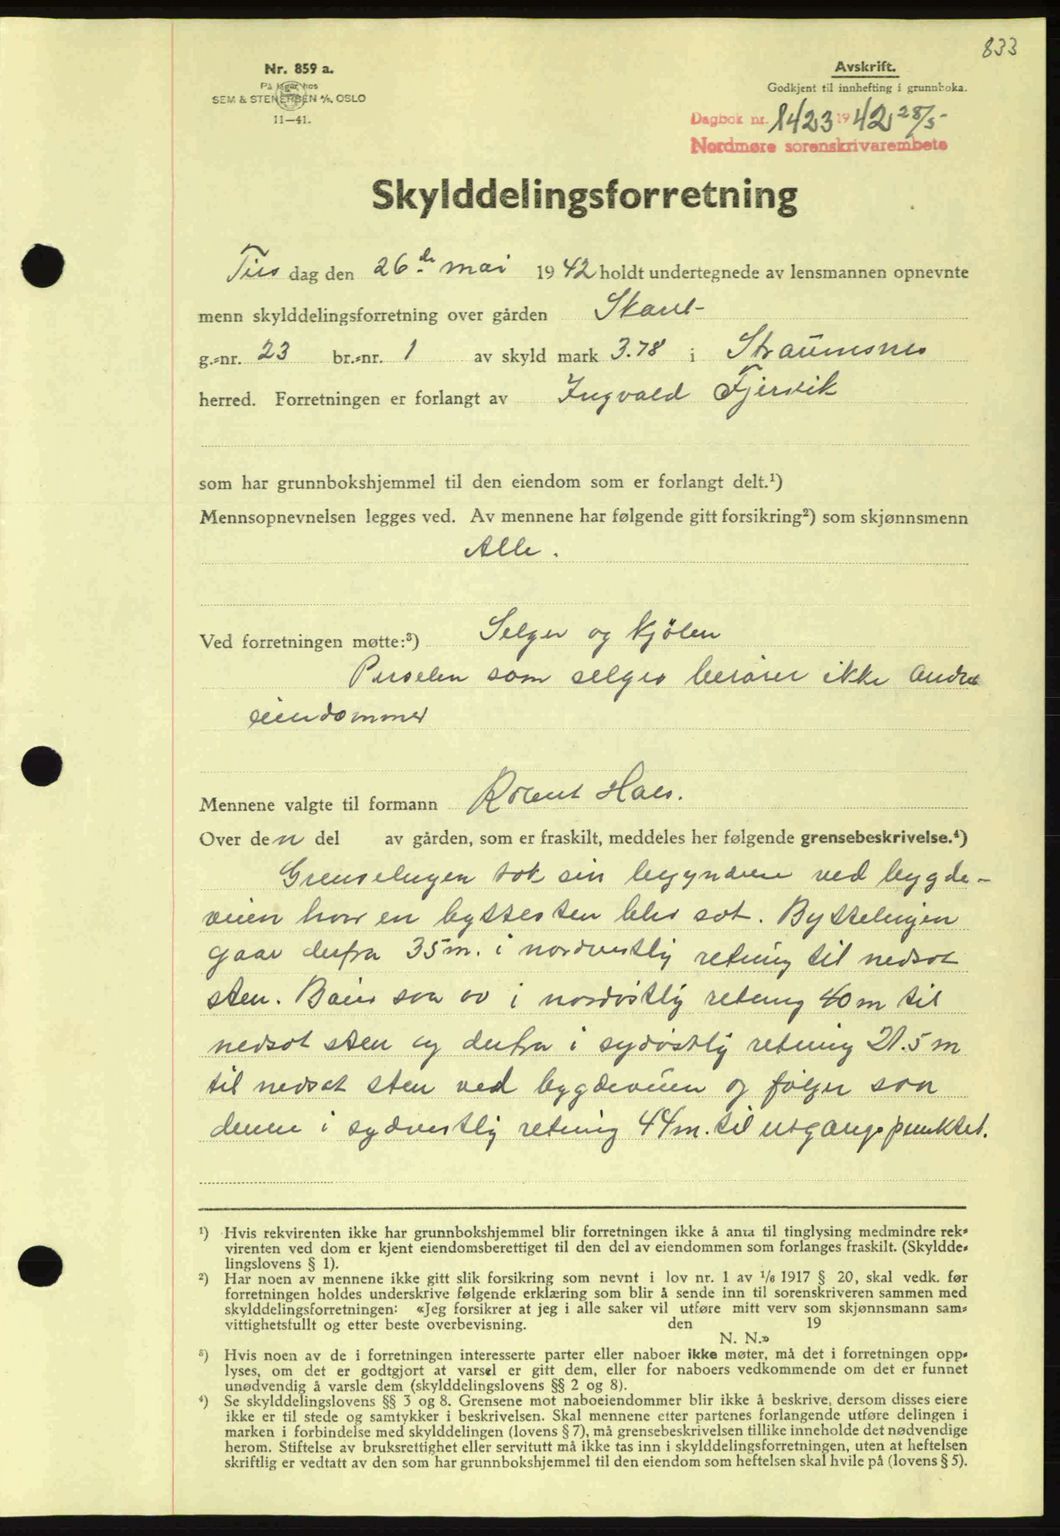 833
Nr. 859 a.
På lager hos
SEM & STENERSEN A/S. OSLO
11—41.
Avskrift.
Godkjent til innhefting i grunnboka.
Dagbok nr. 1423 1942 28/5-
Nordmøre sorenskrivarembete
Skylddelingsforretning
Tirs dag den 26de mai 1942 holdt undertegnede av lensmannen opnevnte
menn skylddelingsforretning over gården Skaret
g.-nr. 23 br.-nr. 1 av skyld mark 3.78 i Straumsnes
herred. Forretningen er forlangt av Ingvald Fjersvik
som har grunnbokshjemmel til den eiendom som er forlangt delt.¹)
Mennsopnevnelsen legges ved. Av mennene har følgende gitt forsikring²) som skjønnsmenn
Alle.
Ved forretningen møtte:³) Selger og kjölen
Parselen som selges berörer ikke andre
eiendommer
Mennene valgte til formann Robert Hals.
Over den del av gården, som er fraskilt, meddeles her følgende grensebeskrivelse.⁴)
Grenselinjen tok sin begyndelse ved bygde-
veien hvor en byttesten blev sat. Byttelinjen
gaar derfra 35m. i nordvestlig retning til nedsat
sten. Bøies saa av i nordöstlig retning 40m til
nedsat sten og derfra i sydöstlig retning 21.5m
til nedsat sten ved bygdeveien og følger saa
denne i sydvestlig retning 44m. til utgangspunktet.
¹) Hvis rekvirenten ikke har grunnbokshjemmel blir forretningen ikke å anta til tinglysing medmindre rek-
virenten ved dom er kjent eiendomsberettiget til den del av eiendommen som forlanges fraskilt. (Skyldde-
lingslovens § 1).
²) Har noen av mennene ikke gitt slik forsikring som nevnt i lov nr. 1 av 1/6 1917 § 20, skal vedk. før
forretningen holdes underskrive følgende erklæring som blir å sende inn til sorenskriveren sammen med
skylddelingsforretningen: «Jeg forsikrer at jeg i alle saker vil utføre mitt verv som skjønnsmann sam-
vittighetsfullt og etter beste overbevisning. den 19
N. N.»
³) Hvis noen av de i forretningen interesserte parter eller naboer ikke møter, må det i forretningen opp-
lyses, om det er godtgjort at varsel er gitt dem, eller for naboers vedkommende om det er funnet
unødvendig å varsle dem (skylddelingslovens §§ 2 og 8).
⁴) Se skylddelingslovens §§ 3 og 8. Grensene mot naboeiendommer blir ikke å beskrive, dersom disses eiere
ikke er til stede og samtykker i beskrivelsen. Skal mennene etter partenes forlangende utføre delingen i
marken i forbindelse med skylddelingen (lovens § 7), må grensebeskrivelsen tillike inneholde det nødvendige
herom. Stiftelse av bruksrettighet eller servitutt må ikke tas inn i skylddelingsforretningen, uten at heftelsen
skriftlig er vedtatt av den som har grunnbokshjemmel til den eiendom som heftelsen skal hvile på (lovens § 5).